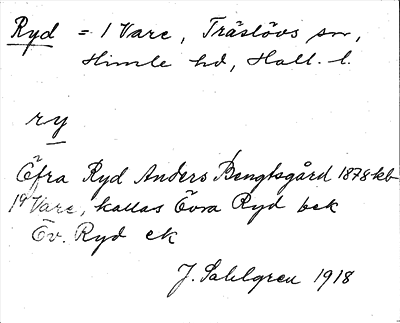 Ryd = 1 Vare, Träslövs sn,
Himle hd, Hall. l.
ry
Öfra Ryd Anders Bengtsgård 1878 kb
19 Vare, kallas Övra Ryd bek
Öv. Ryd ek
J. Sahlgren 1918